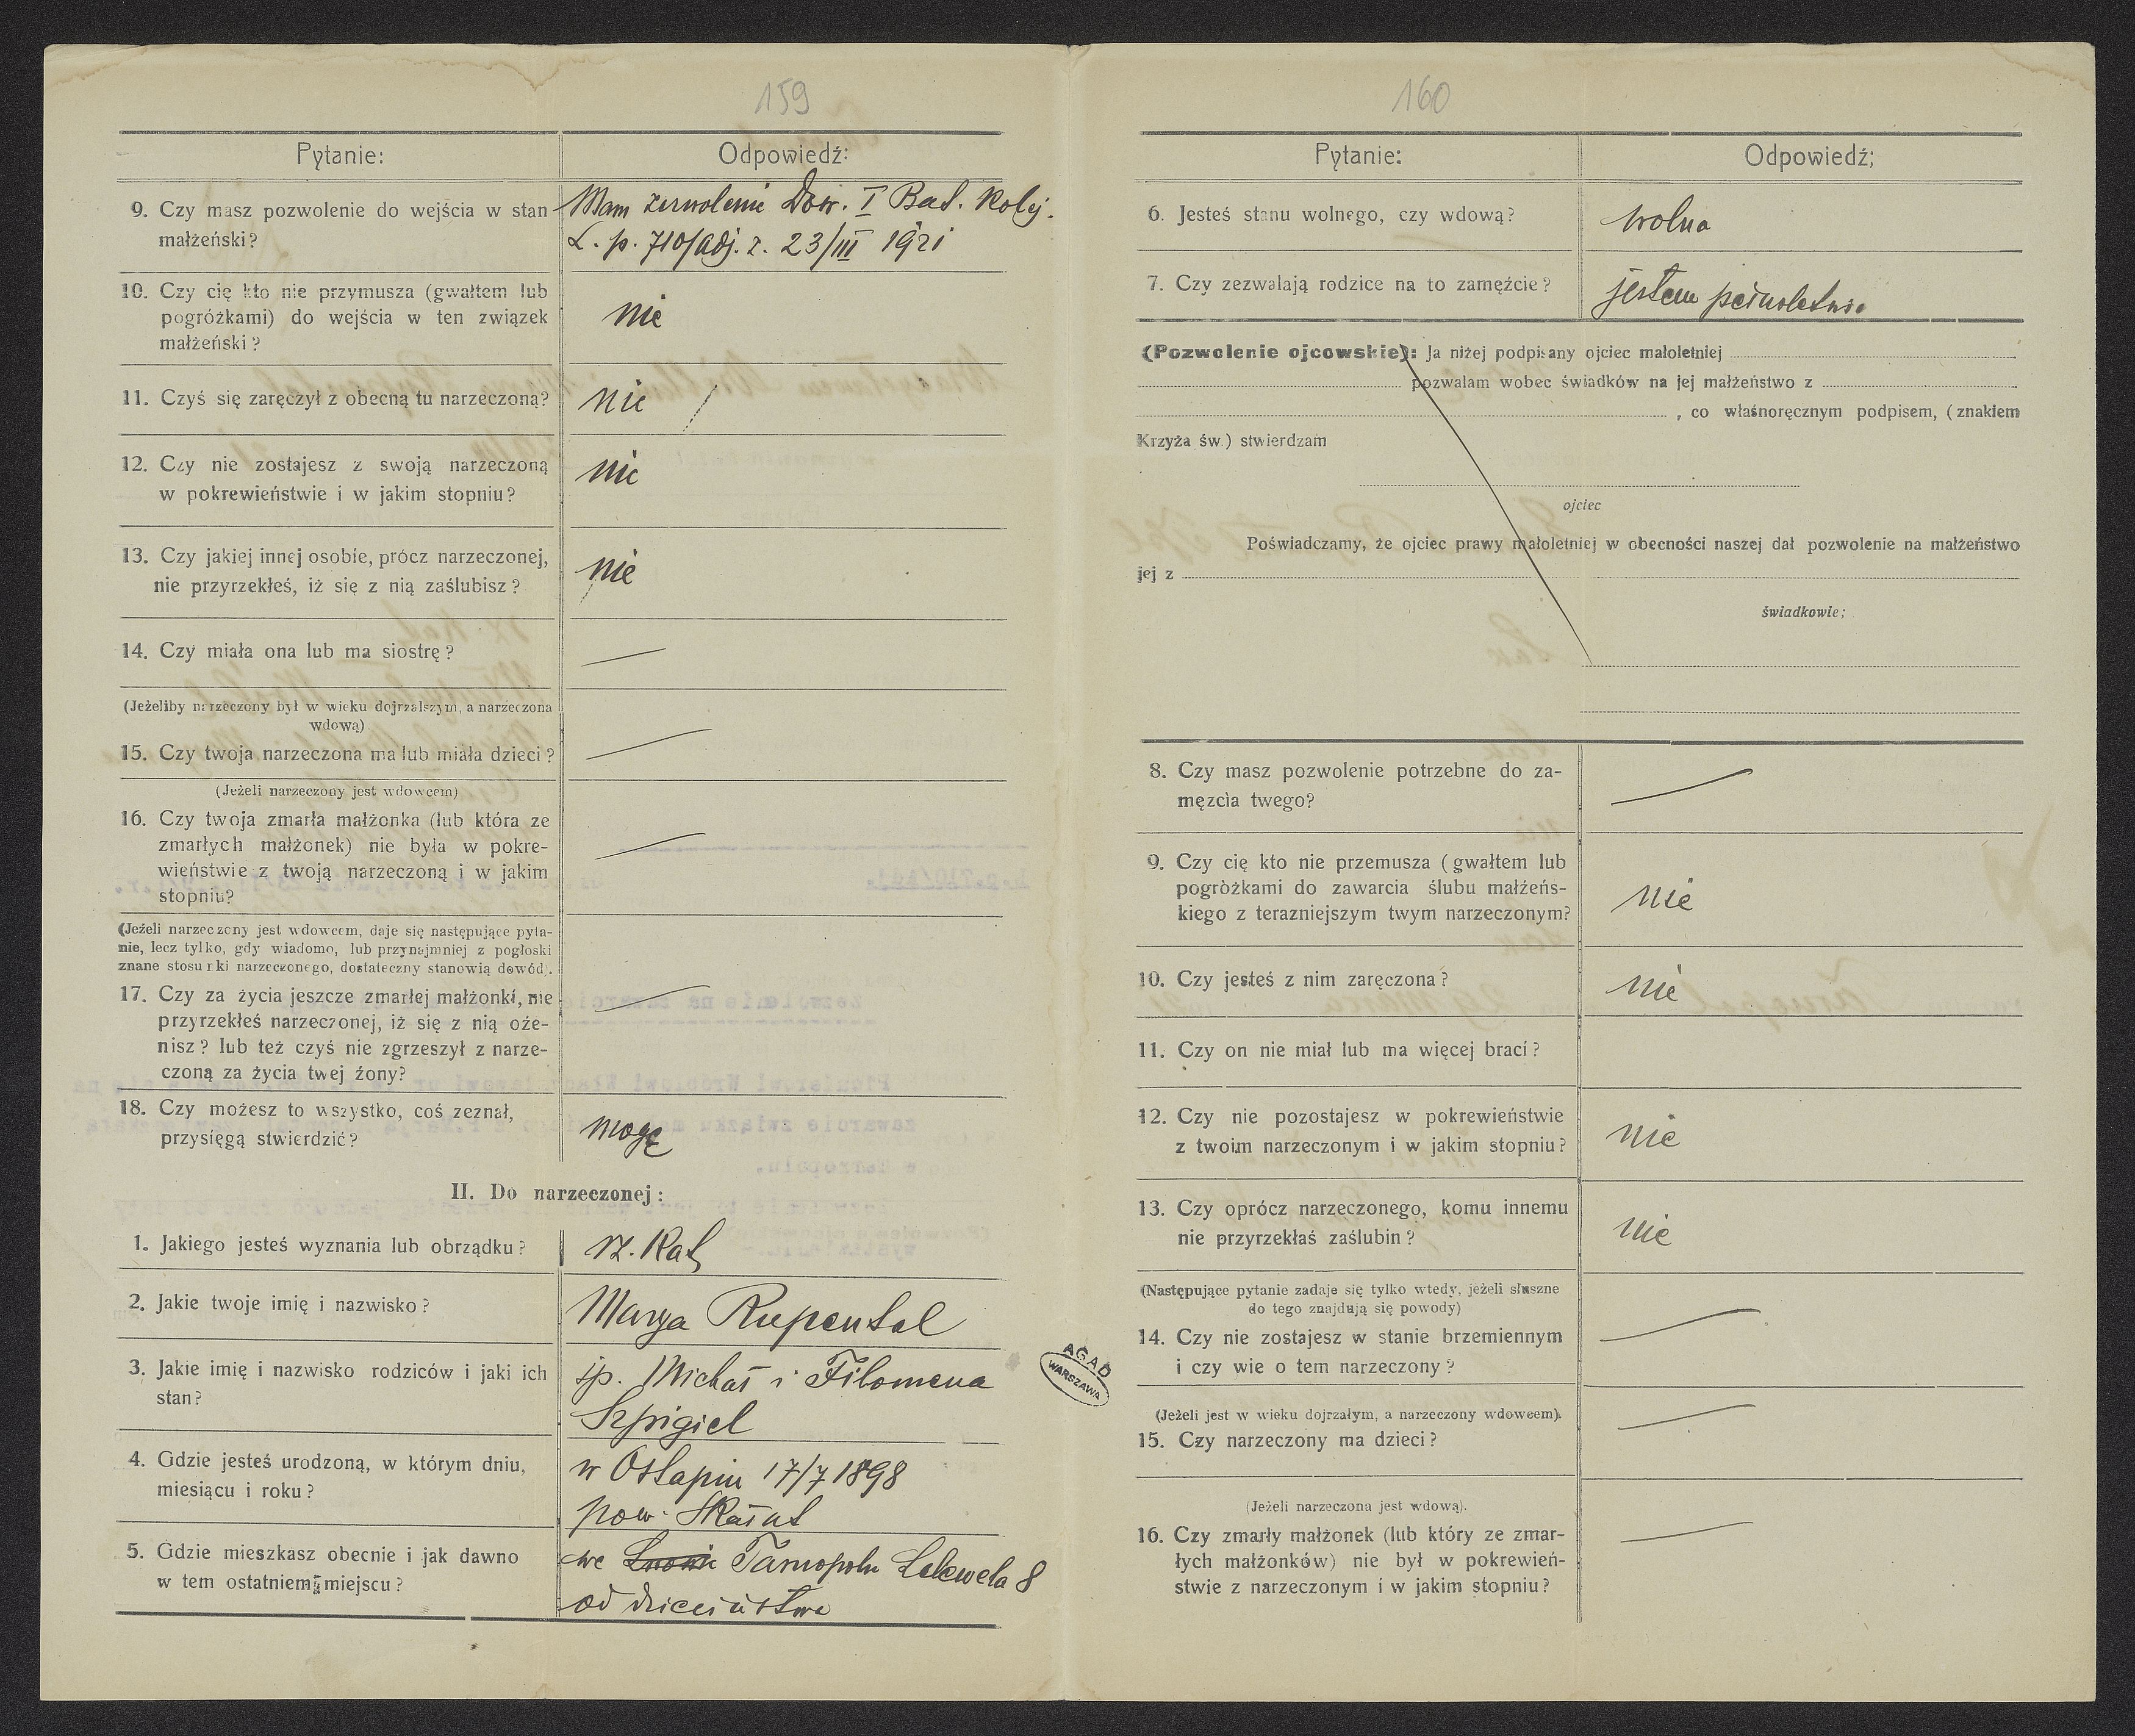 159
Pytanie:
Odpowiedź:
9. Czy masz pozwolenie do wejścia w stan
małżeński?
Mam zezwolenie Dow. I Bat. Kolej.
L. p. 710/adj. z. 23/III 1921
10. Czy cię kto nie przymusza (gwałtem lub
pogróżkami) do wejścia w ten związek
małżeński?
nie
11. Czyś się zaręczył z obecną tu narzeczoną?
nie
12. Czy nie zostajesz z swoją narzeczoną
w pokrewieństwie i w jakim stopniu?
nie
13. Czy jakiej innej osobie, prócz narzeczonej,
nie przyrzekłeś, iż się z nią zaślubisz?
nie
14. Czy miała ona lub ma siostrę?
(Jeżeliby narzeczony był w wieku dojrzalszym, a narzeczona
wdową)
15. Czy twoja narzeczona ma lub miała dzieci?
(Jeżeli narzeczony jest wdowcem)
16. Czy twoja zmarła małżonka (lub która ze
zmarłych małżonek) nie była w pokre-
wieństwie z twoją narzeczoną i w jakim
stopniu?
(Jeżeli narzeczony jest wdowcem, daje się następujące pyta-
nie, lecz tylko, gdy wiadomo, lub przynajmniej z pogłoski
znane stosunki narzeczonego, dostateczny stanowią dowód).
17. Czy za życia jeszcze zmarłej małżonki, nie
przyrzekłeś narzeczonej, iż się z nią oże-
nisz? lub też czyś nie zgrzeszył z narze-
czoną za życia twej żony?
18. Czy możesz to wszystko, coś zeznał,
przysięgą stwierdzić?
mogę
II. Do narzeczonej:
1. Jakiego jesteś wyznania lub obrządku?
rz. Kat
2. Jakie twoje imię i nazwisko?
Marya Rupental
3. Jakie imię i nazwisko rodziców i jaki ich
stan?
śp. Michał i Filomena
Szpigiel
4. Gdzie jesteś urodzoną, w którym dniu,
miesiącu i roku?
w Ostapiu 17/7 1898
pow. Skałat
5. Gdzie mieszkasz obecnie i jak dawno
w tem ostatniem miejscu?
we Lwowie Tarnopolu Lelewela 8
od dzieciństwa
AGAD
WARSZAWA
160
Pytanie:
Odpowiedź;
6. Jesteś stanu wolnego, czy wdową?
wolna
7. Czy zezwalają rodzice na to zamęźcie?
jestem pełnoletnia
(Pozwolenie ojcowskie): Ja niżej podpisany ojciec małoletniej
pozwalam wobec świadków na jej małżeństwo z
, co własnoręcznym podpisem, (znakiem
Krzyża św.) stwierdzam
ojciec
Poświadczamy, że ojciec prawy małoletniej w obecności naszej dał pozwolenie na małżeństwo
jej z
świadkowie;
8. Czy masz pozwolenie potrzebne do za-
męzcia twego?
9. Czy cię kto nie przemusza (gwałtem lub
pogròżkami do zawarcia ślubu małżeńs-
kiego z terazniejszym twym narzeczonym?
nie
10. Czy jesteś z nim zaręczona?
nie
11. Czy on nie miał lub ma więcej braci?
12. Czy nie pozostajesz w pokrewieństwie
z twoim narzeczonym i w jakim stopniu?
nie
13. Czy oprócz narzeczonego, komu innemu
nie przyrzekłaś zaślubin?
nie
(Następujące pytanie zadaje się tylko wtedy, jeżeli słuszne
do tego znajdują się powody)
14. Czy nie zostajesz w stanie brzemiennym
i czy wie o tem narzeczony?
(Jeżeli jest w wieku dojrzałym, a narzeczony wdowcem).
15. Czy narzeczony ma dzieci?
(Jeżeli narzeczona jest wdową).
16. Czy zmarły małżonek (lub który ze zmar-
łych małżonków) nie był w pokrewień-
stwie z narzeczonym i w jakim stopniu?